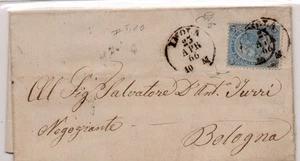 IMOLA
23
APR
66
10 M
Al Sig. Salvatore D'Ant. Turri
Negoziante
Bologna